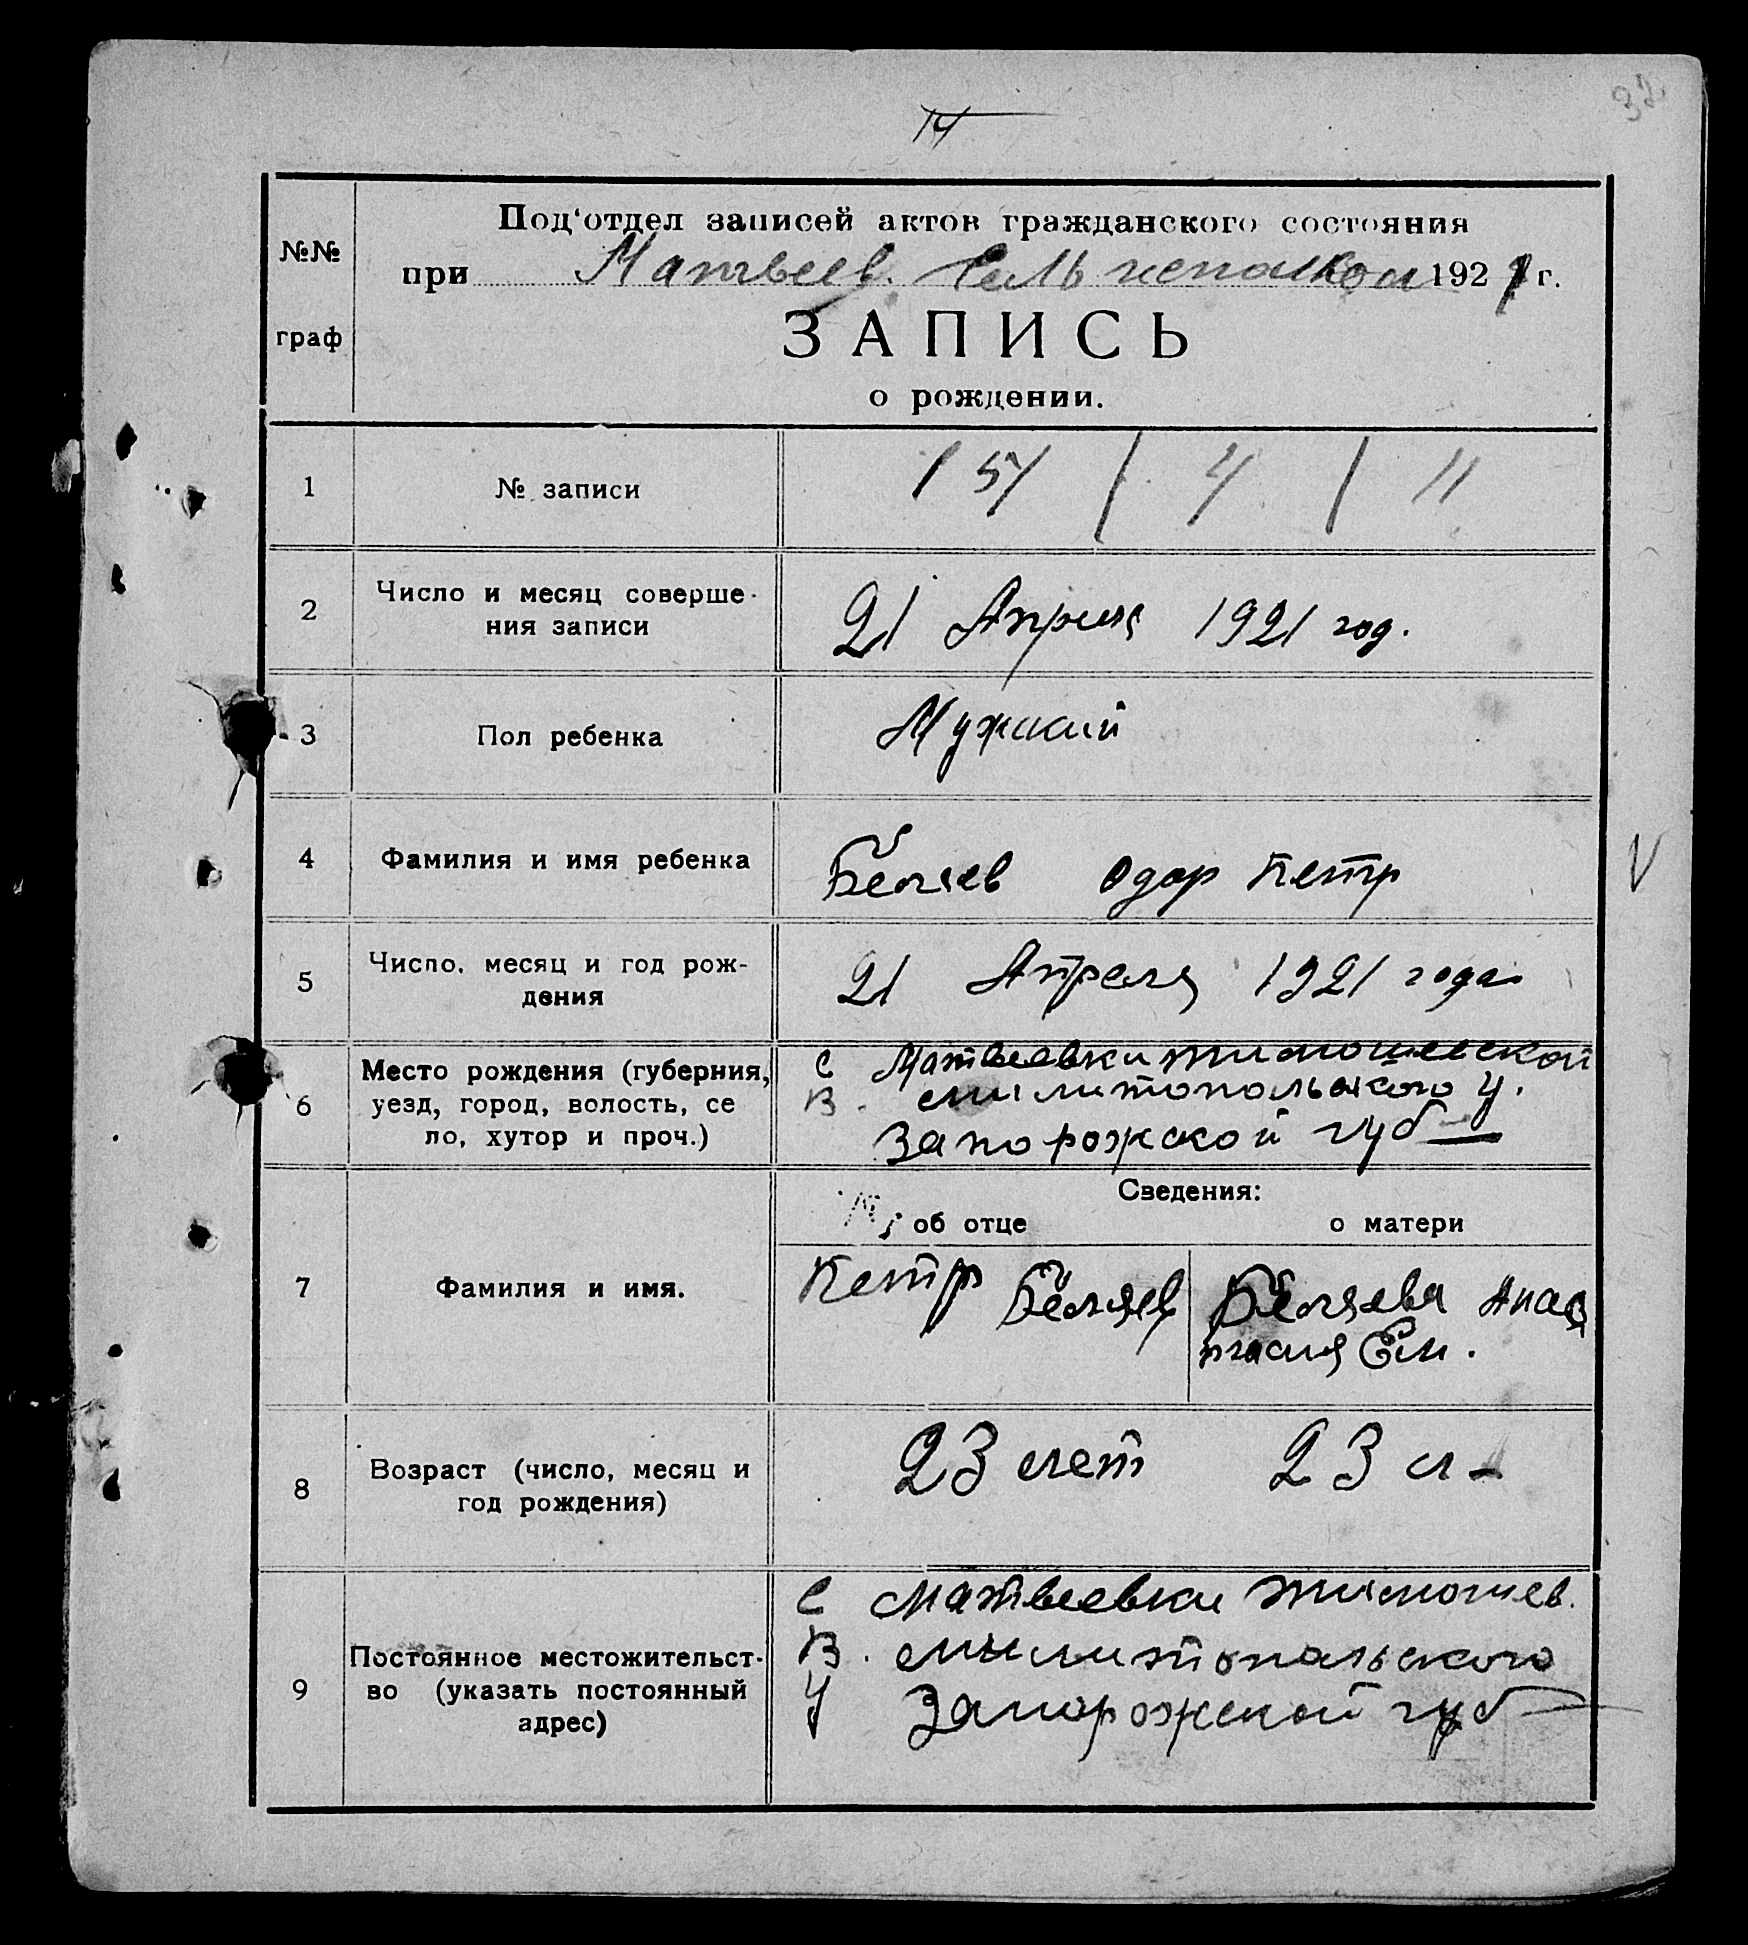 32
14
№№
граф
Под'отдел записей актов гражданского состояния
при Матвеев. Сельисполком 1921 г.
ЗАПИСЬ
о рождении.
1 № записи 157 / 4 / 11
2 Число и месяц соверше-
ния записи 21 Апреля 1921 год.
3 Пол ребенка Мужский
4 Фамилия и имя ребенка Беляев Петр
5 Число, месяц и год рож-
дения 21 Апреля 1921 года
6 Место рождения (губерния,
уезд, город, волость, се
ло, хутор и проч.)
С Матвеевки тимошевской
В. милитопольского у.
Запорожской губ
Сведения:
об отце о матери
7 Фамилия и имя.
Петр Беляев
Беляева Анас
тасия Ем.
8 Возраст (число, месяц и
год рождения)
23 лет 23 л
9 Постоянное местожительст-
во (указать постоянный
адрес)
С Матвеевки тимошев.
В. милитопольского
У Запорожской губ
V